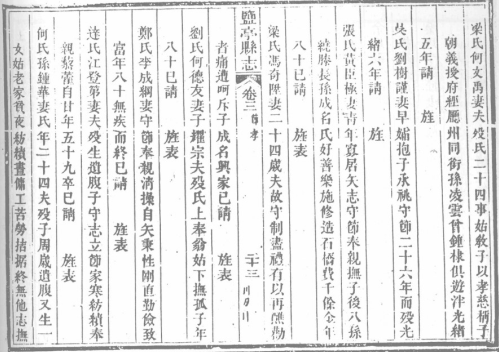 梁氏何文萬妻夫歿氏二十四事姑敎子以孝慈稱子
朝義授府經歷州同銜孫凌雲曾鍾棣俱遊泮光緒
五年請　　旌
吳氏劉樹謹妻早孀抱子承祧守節二十六年而歿光
緒六年請　　旌
張氏黃臣極妻青年寡居矢志守節奉親撫子後八孫
繞膝長孫成名氏好善樂施修造石橋費千餘金年
八十已請　　旌表
梁氏馮奇歷妻二十四歲夫故守制盡禮有以再醮勸
鹽亭縣志　卷三　節孝　二十三
者痛遭呵斥子成名興家已請　　旌表
劉氏何德友妻子鑼宗夫歿氏上奉翁姑下撫孤子年
八十已請　　旌表
鄭氏李成綱妻守節奉親清操自矢秉性剛直勤儉致
富年八十無疾而終已請　　旌表
達氏江登第妻夫歿生遺腹子守志立節家寒紡績奉
親藜藿自甘年五十九卒已請　　旌表
何氏孫鍾華妻氏年二十四夫歿子周歲遺腹又生一
女姑老家貧夜紡績晝傭工苦勞拮据終無他志撫